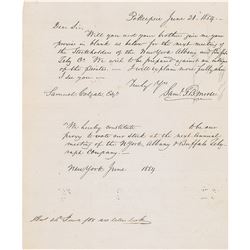 Po'keepsie June 21. 1854.
Dear Sir,
Will you and your brother give me your
proxies in blank as below for the next meeting of
the Stockholders of the New York Albany and Buffalo
Telg Co. We wish to be prepared against an intrigue
of the I will explain more fully when
I see you
Truly Yrs
Saml. F. B. Morse.
Samuel Colgate Esqr
"We hereby constitute to be our
proxy to vote our stock at the next annual
meeting of the N. York, Albany & Buffalo Tele-
graph Company.
New York June 1854